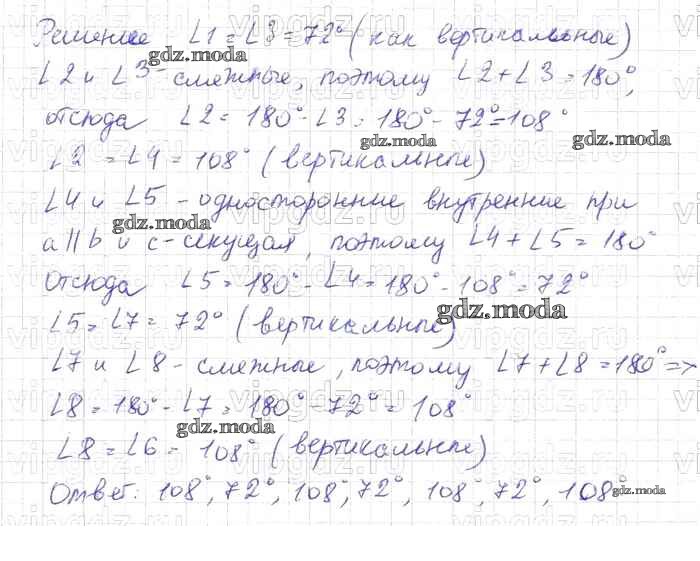 Решение ∠1 = ∠3 = 72° (как вертикальные)
∠2 и ∠3 - смежные, поэтому ∠2 + ∠3 = 180°,
отсюда ∠2 = 180° - ∠3 = 180° - 72° = 108°
∠2 = ∠4 = 108° (вертикальные)
∠4 и ∠5 - односторонние внутренние при
a || b и c - секущая, поэтому ∠4 + ∠5 = 180°
Отсюда ∠5 = 180° - ∠4 = 180° - 108° = 72°
∠5 = ∠7 = 72° (вертикальные)
∠7 и ∠8 - смежные, поэтому ∠7 + ∠8 = 180° =>
∠8 = 180° - ∠7 = 180° - 72° = 108°
∠8 = ∠6 = 108° (вертикальные)
Ответ: 108°, 72°, 108°, 72°, 108°, 72°, 108°
gdz.moda
gdz.moda
gdz.moda
gdz.moda
gdz.moda
gdz.moda
gdz.moda
gdz.moda
vipgdz.ru